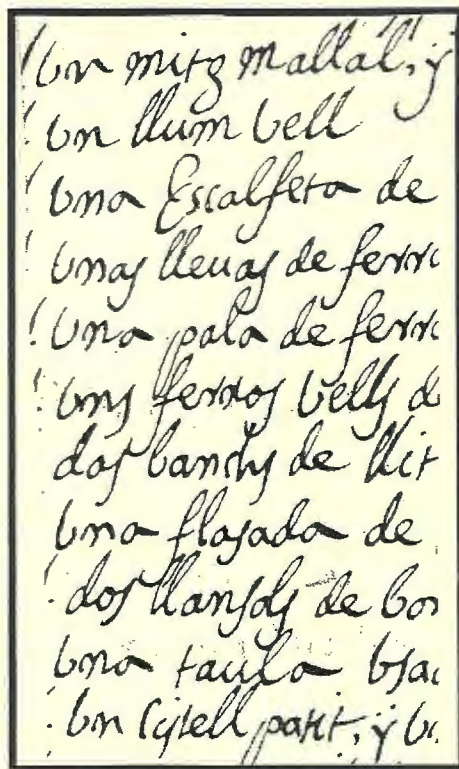 Un mitg mallal, y
Un llum vell
Una Escalfeta de
Unas llevas de ferro
Una pala de ferro
Uns ferros vells d
dos banchs de llit
Una flasada de
dos llansols de bor
Una taula usa
Un sistell patit, y